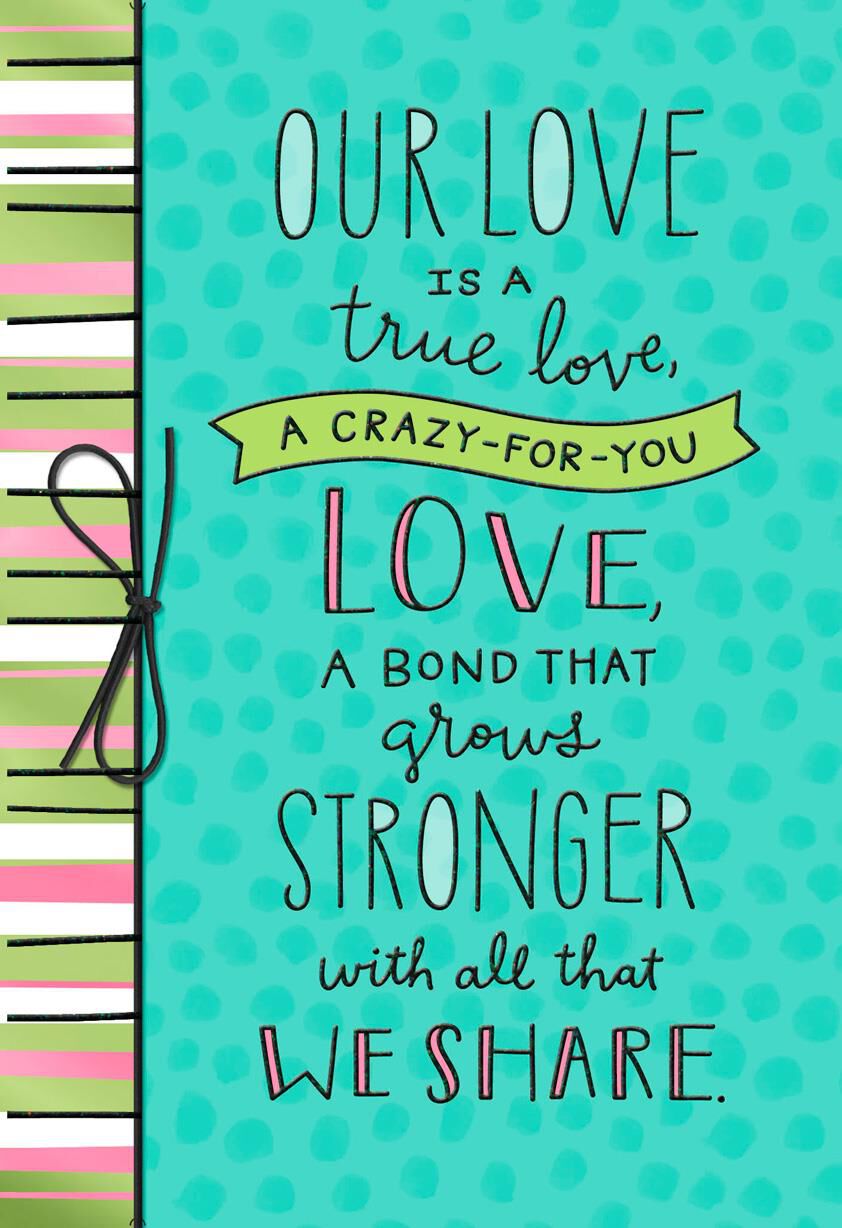 OUR LOVE
IS A
true love,
A CRAZY-FOR-YOU
LOVE,
A BOND THAT
grows
STRONGER
with all that
WE SHARE.